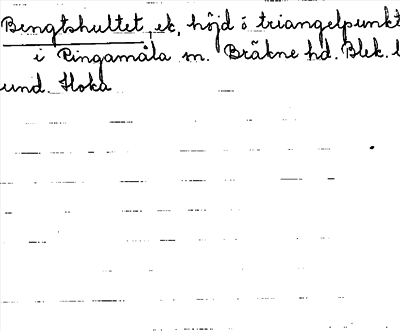 Bengtshultet, ek, höjd ö triangelpunkt
i Ringamåla sn. Bräkne hd. Blek. l
und. Hoka